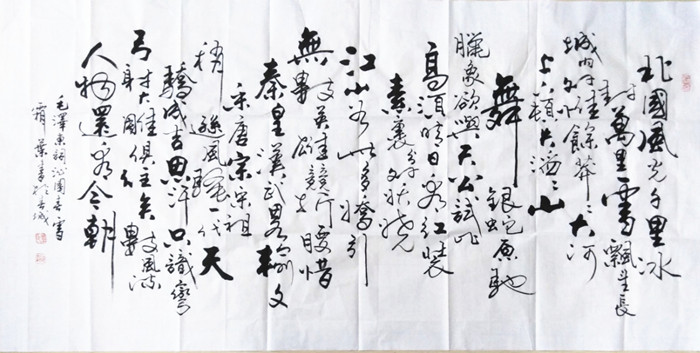 北國風光千里冰
封萬里雪飄望長
城內外惟餘莽〻大河
上下頓失滔〻山
舞銀蛇原馳
臘象欲與天公試比
高須晴日看紅裝
素裹分外妖嬈
江山如此多嬌引
無數英雄競折腰惜
秦皇漢武略輸文
采唐宗宋祖
稍遜風騷一代天
驕成吉思汗只識彎
弓射大雕俱往矣數風流
人物還看今朝
毛澤東詞沁園春雪
霜葉書於